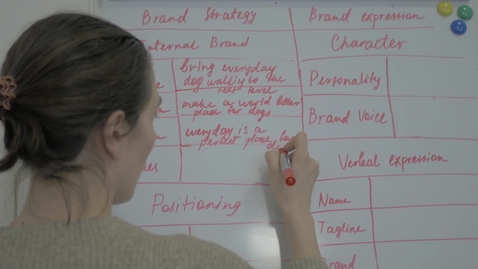 Brand Strategy
Internal Brand
bring everyday
dog walking to the
next level
make a world better
place for dogs
everyday is a
perfect place for
Positioning
Brand expression
Character
Personality
Brand Voice
Verbal expression
Name
Tagline
Brand